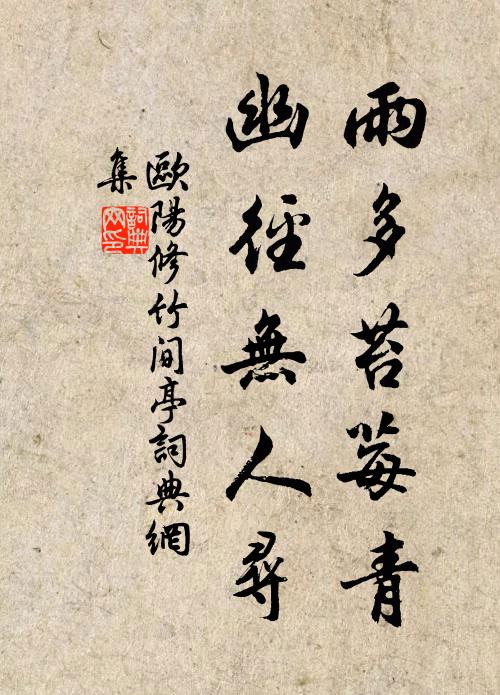 雨多苔莓青
幽徑無人尋
歐陽修竹间亭詞典網
集
詞典网印